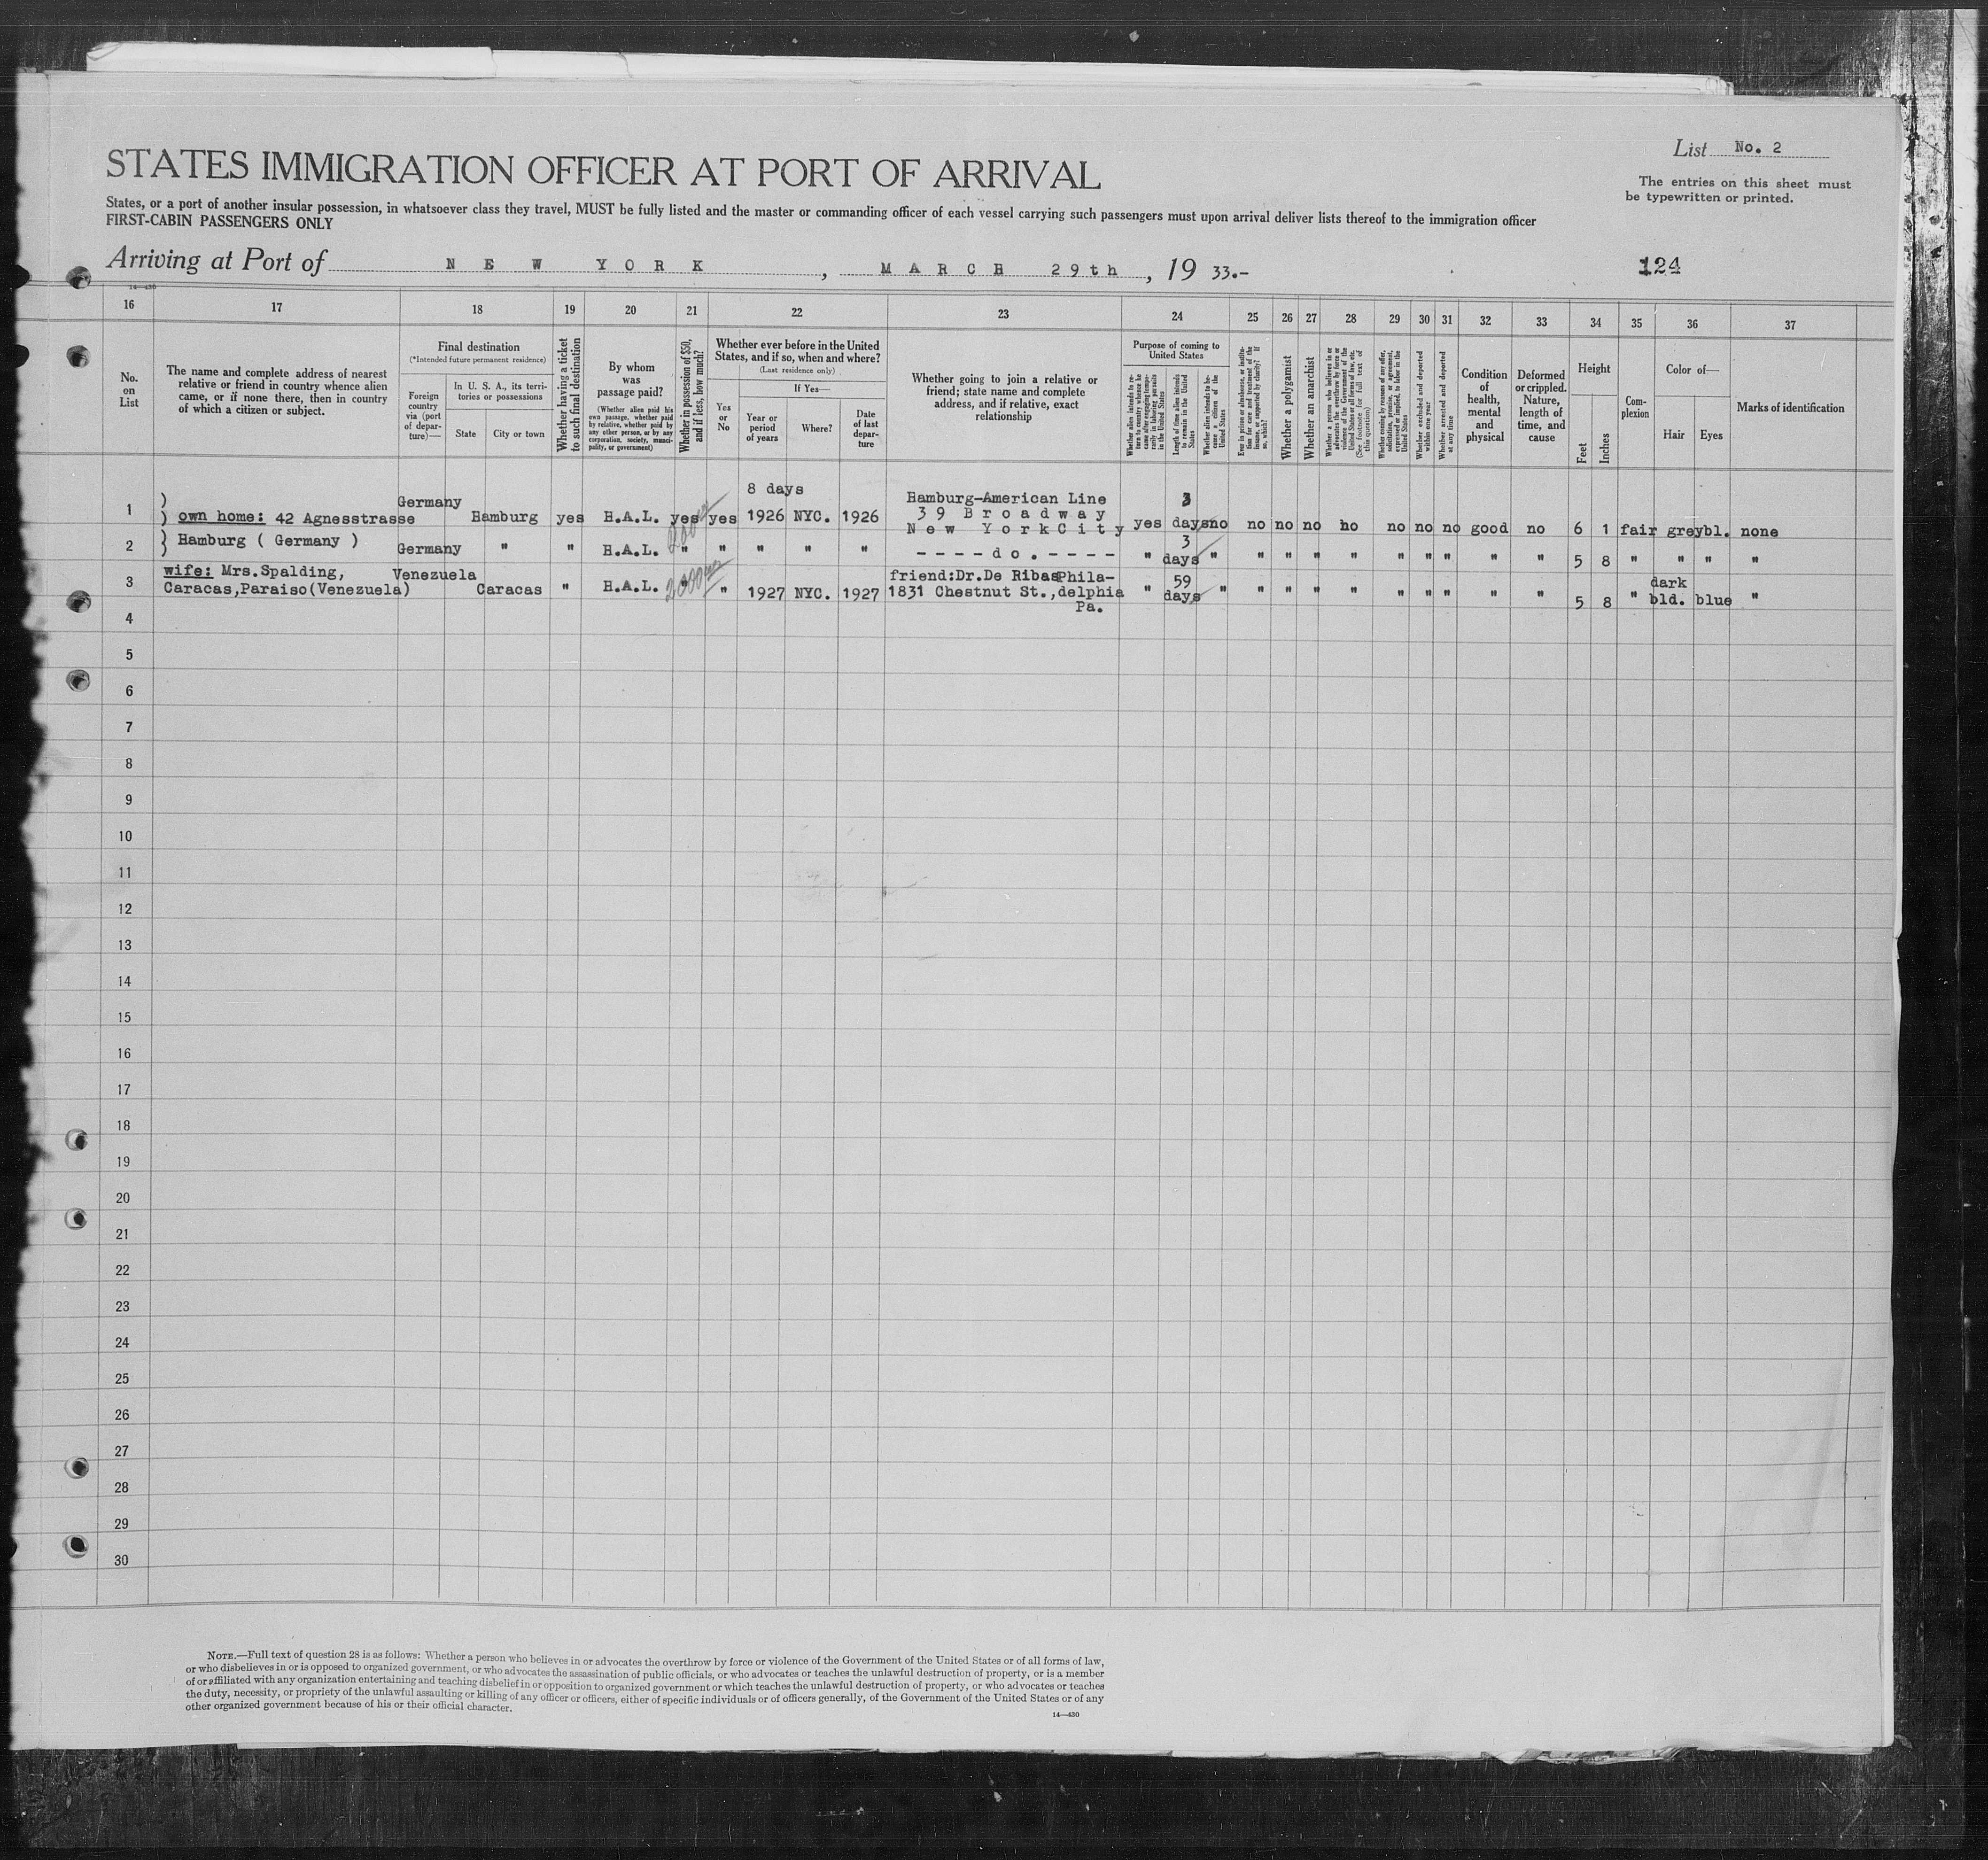 STATES IMMIGRATION OFFICER AT PORT OF ARRIVAL
List No. 2
The entries on this sheet must
be typewritten or printed.
States, or a port of another insular possession, in whatsoever class they travel, MUST be fully listed and the master or commanding officer of each vessel carrying such passengers must upon arrival deliver lists thereof to the immigration officer
FIRST-CABIN PASSENGERS ONLY
Arriving at Port of NEW YORK, MARCH 29th, 19 33.-
124
14—430
16 17 18 19 20 21 22 23 24 25 26 27 28 29 30 31 32 33 34 35 36 37
No.
on
List
The name and complete address of nearest
relative or friend in country whence alien
came, or if none there, then in country
of which a citizen or subject.
Final destination
(*Intended future permanent residence)
Foreign
country
via (port
of depar-
ture)—
In U. S. A., its terri-
tories or possessions
State City or town
Whether having a ticket
to such final destination
By whom
was
passage paid?
(Whether alien paid his
own passage, whether paid
by relative, whether paid by
any other person, or by any
corporation, society, munici-
pality, or government)
Whether in possession of $50,
and if less, how much?
Whether ever before in the United
States, and if so, when and where?
(Last residence only)
Yes
or
No
If Yes—
Year or
period
of years
Where?
Date
of last
depar-
ture
Whether going to join a relative or
friend; state name and complete
address, and if relative, exact
relationship
Purpose of coming to
United States
Whether alien intends to re-
turn to country whence he
came after engaging tempo-
rarily in laboring pursuits
in the United States
Length of time alien intends
to remain in the United
States
Whether alien intends to be-
come a citizen of the
United States
Ever in prison or almshouse, or institu-
tion for care and treatment of the
insane, or supported by charity? If
so, which?
Whether a polygamist
Whether an anarchist
Whether a person who believes in or
advocates the overthrow by force or
violence of the Government of the
United States or all forms of law, etc.
(See footnote for full text of
this question)
Whether coming by reasons of any offer,
solicitation, promise, or agreement,
expressed or implied, to labor in the
United States
Whether excluded and deported
within one year
Whether arrested and deported
at any time
Condition
of
health,
mental
and
physical
Deformed
or crippled.
Nature,
length of
time, and
cause
Height
Feet Inches
Com-
plexion
Color of—
Hair Eyes
Marks of identification
1 ) own home: 42 Agnesstrasse Germany Hamburg yes H.A.L. yes yes 8 days 1926 NYC. 1926 Hamburg-American Line
39 Broadway
New York City yes 3 days no no no no no no no no good no 6 1 fair grey bl. none
2 ) Hamburg ( Germany ) Germany " " H.A.L. " " " " " ----do.---- " 3 days " " " " " " " " " " 5 8 " " " "
3 wife: Mrs.Spalding, Venezuela
Caracas,Paraiso(Venezuela) Caracas " H.A.L. " 2000 " 1927 NYC. 1927 friend:Dr.De Ribas Phila-
1831 Chestnut St.,delphia
Pa. " 59 days " " " " " " " " " " 5 8 " dark bld. blue "
4
5
6
7
8
9
10
11
12
13
14
15
16
17
18
19
20
21
22
23
24
25
26
27
28
29
30
NOTE.—Full text of question 28 is as follows: Whether a person who believes in or advocates the overthrow by force or violence of the Government of the United States or of all forms of law,
or who disbelieves in or is opposed to organized government, or who advocates the assassination of public officials, or who advocates or teaches the unlawful destruction of property, or is a member
of or affiliated with any organization entertaining and teaching disbelief in or opposition to organized government or which teaches the unlawful destruction of property, or who advocates or teaches
the duty, necessity, or propriety of the unlawful assaulting or killing of any officer or officers, either of specific individuals or of officers generally, of the Government of the United States or of any
other organized government because of his or their official character.
14—430